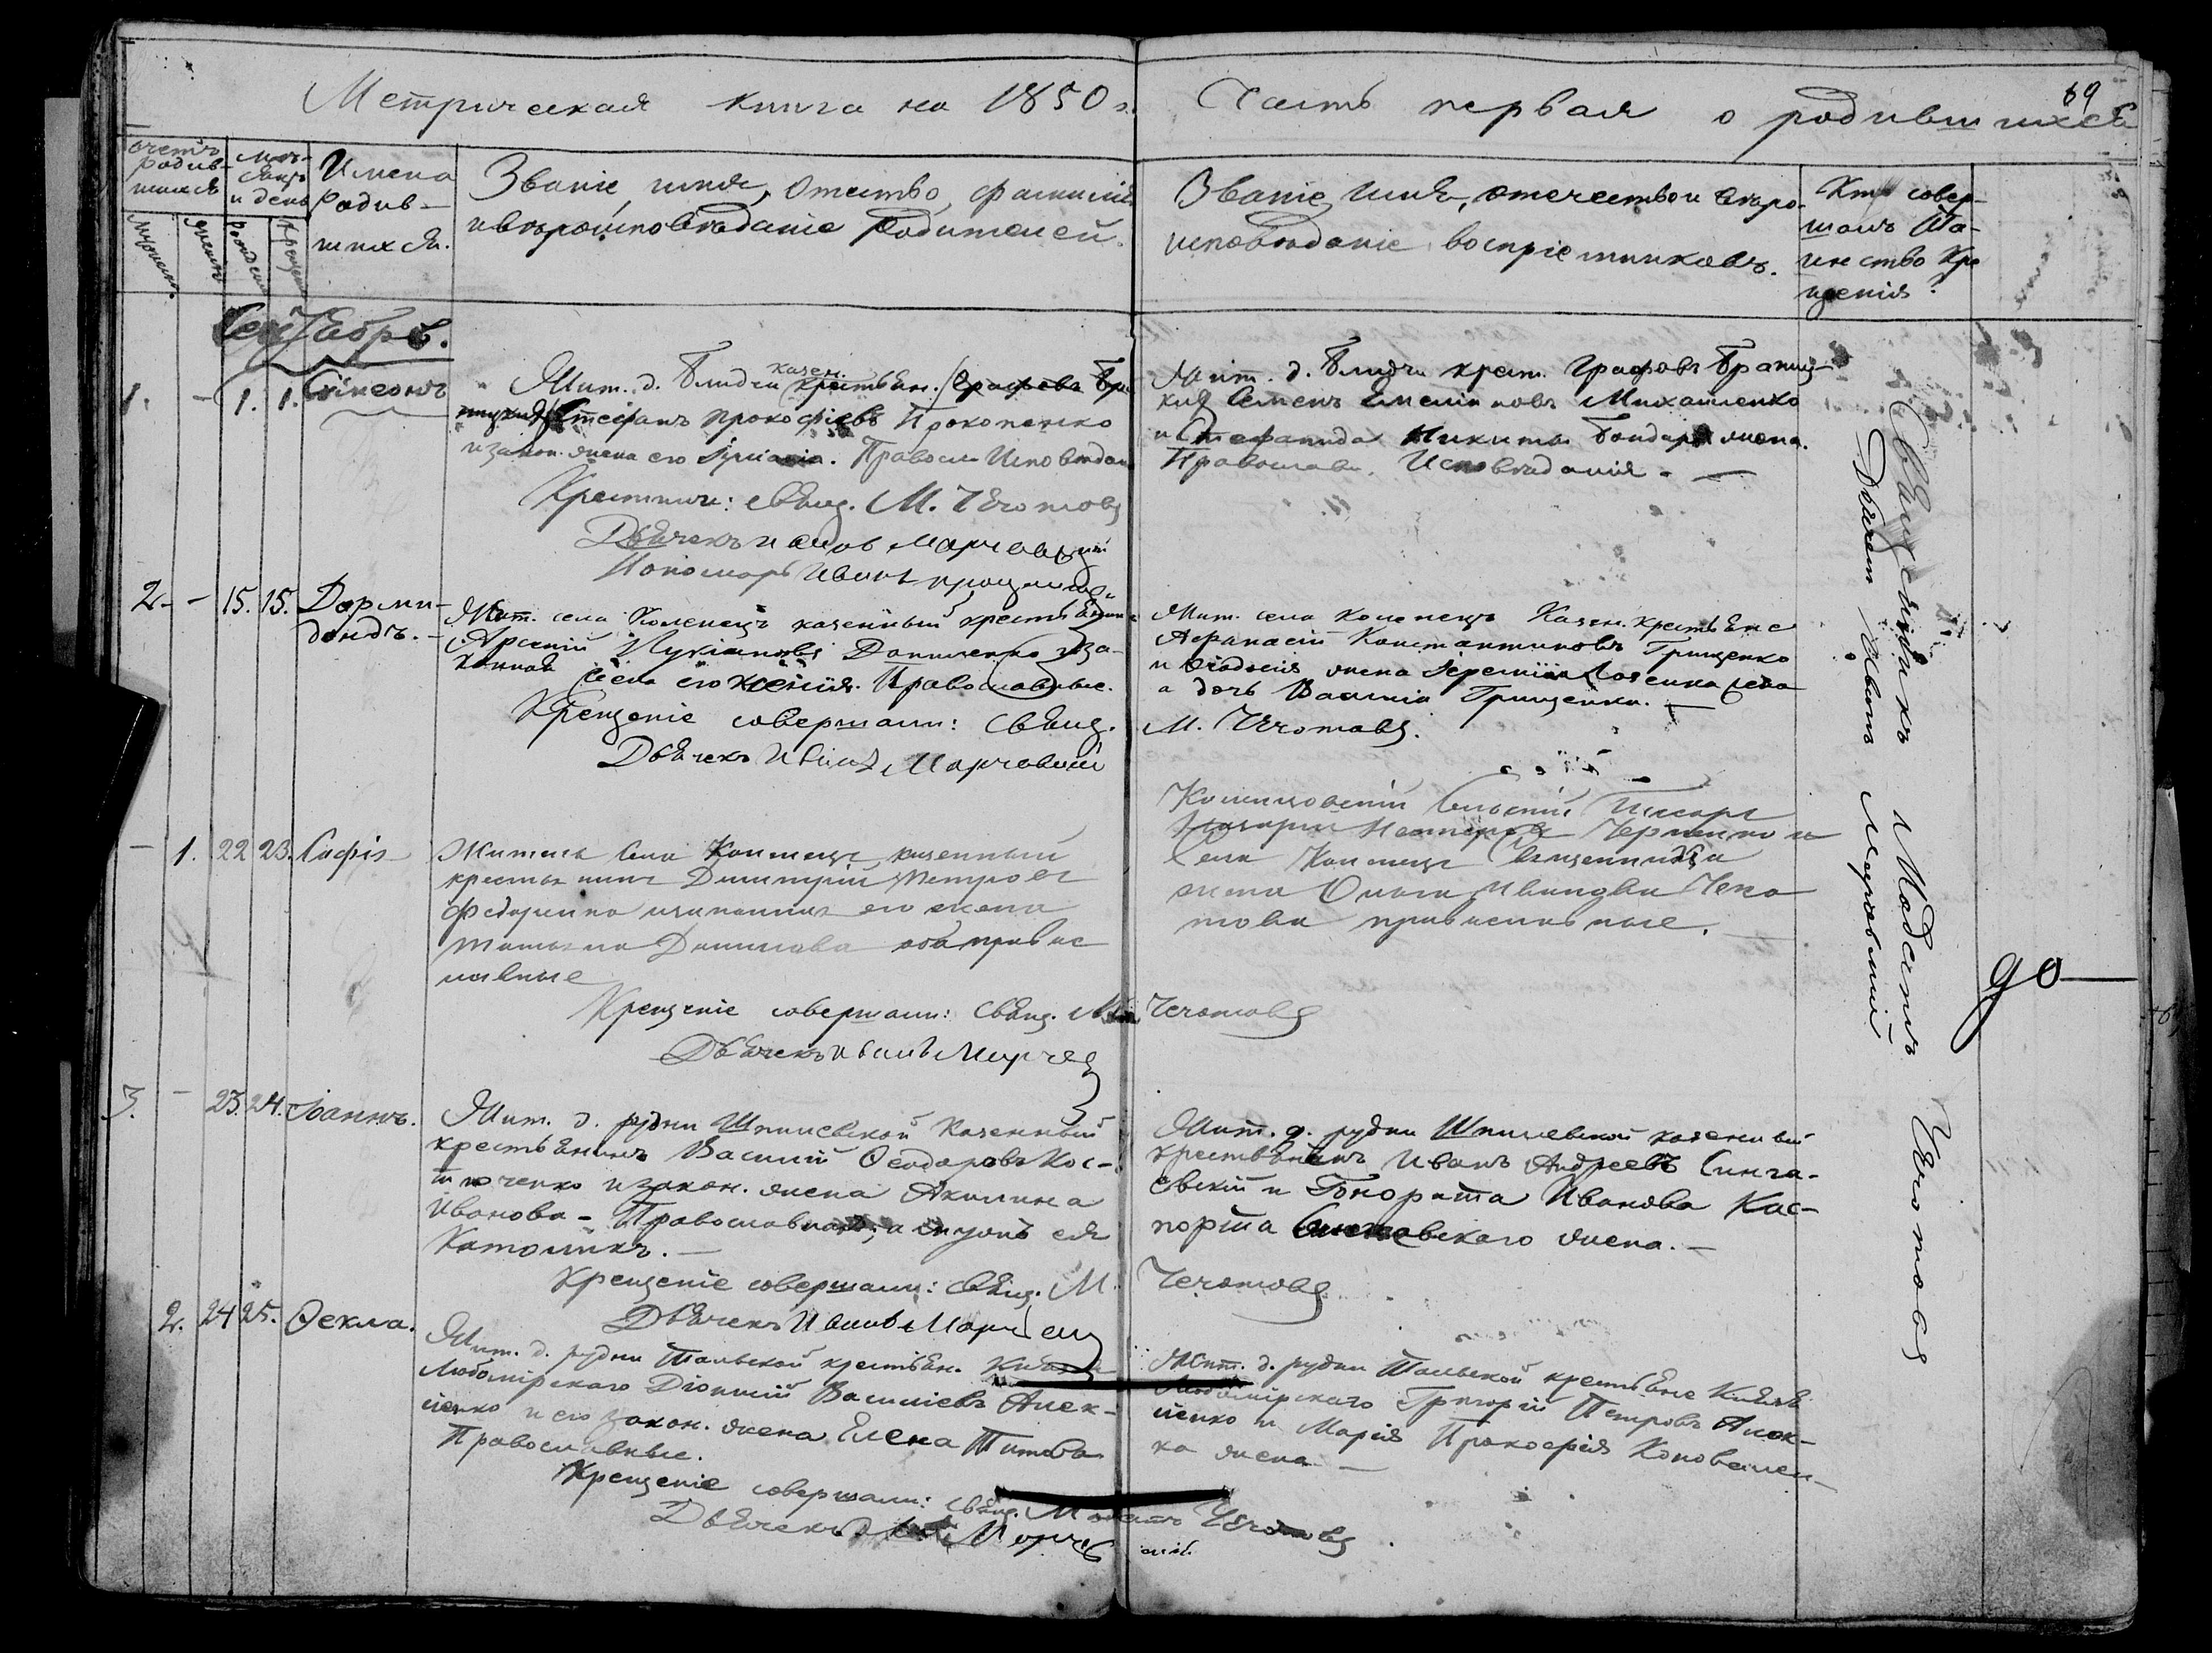 Метрическая книга на 1850 г.
Часть первая о родившихся
69
счетъ родив-
шихся
мѣ-
сяцъ
и день
Имена
родив-
шихся.
Званіе, имя, отество, фамилія
и вѣроисповѣданіе родителей.
Званіе, имя, отечество и вѣро-
исповѣданіе воспріемниковъ.
Кто совер-
шалъ Та-
инство Кре
щенія?
мужеска.
женска
рожденія
крещенія
Сентябрь.
1. - 1. 1. Сѵмеонъ
казен.
Жит. д. Блидчи крестьян. Графовъ Бра
ницкихъ Стефанъ Прокофіевъ Прокопенко
и закон. жена его. Правосл. Исповѣдан
Крестили: свящ. М. Чеготовъ
Дьячекъ Иванъ Марчевскій
Пономарь Иванъ
Жит. д. Блидчи крест. Графовъ Браниц-
кихъ Семенъ Емеліановъ Михайленко
и Стефанида Никиты Бондаря жена.
Православн. Исповѣданія. -
2. - 15. 15. Дорми-
донтъ. -
Жит. села Коленецъ казенный крестьянин
Арсеній Лукіановъ Даниленко и за-
конная жена его Ксенія. Православные.
Крещеніе совершали: Свящ.
Дьячекъ Иванъ Марчевскій
Жит. села Коленецъ Казен. крестьяне
Афанасій Константиновъ Грищенко
и Феодосія жена Іереміи
а дочь Василія Грищенка. -
М. Чеготовъ.
- 1. 22 23. Софія
Житель села Коленецъ казенный
крестьянинъ Димитрій Петровъ
Федоренко и законная его жена
Татьяна Данилова оба правос
лавные
Крещеніе совершали: Свящ. М.
Дьячекъ Иванъ Марчев
Сельскій Писарь
Нестеровъ Черненко и
Села Коленецъ Священника
жена Ольга Иванова Чего
това православные.
Чеготовъ
3. - 23. 24. Іоаннъ.
Жит. д. рудни Шпилевской Казенный
крестьянинъ Василій Феодоровъ Кос-
тюченко и закон. жена Акилина
Иванова - Православная, а мужъ ея
Католикъ. -
Крещеніе совершали: Свящ. М.
Дьячекъ Иванъ Марчевск
Жит. д. рудни Шпилевской казенный
крестьянинъ Иванъ Андреевъ Синга-
евскій и Гонората Иванова Кас-
перта Сингаевского жена. -
Чеготовъ
2. 24 25. Фекла.
Жит. д. рудни Тальской крестьян. Князя
Любомірскаго Діонисій Василіевъ Алек-
сіенко и его закон. жена Елена Титова
Православные.
Крещеніе совершали: Свящ. Модестъ Чеготовъ
Дьячекъ Марчевскій.
Жит. д. рудни Тальской крестьяне Князя
Любомірскаго Григорій Петровъ Алек-
сіенко и Марія Прокофія Коновален-
ка жена -
Священникъ Модестъ Чеготовъ
Дьячекъ Иванъ Марчевскій
90